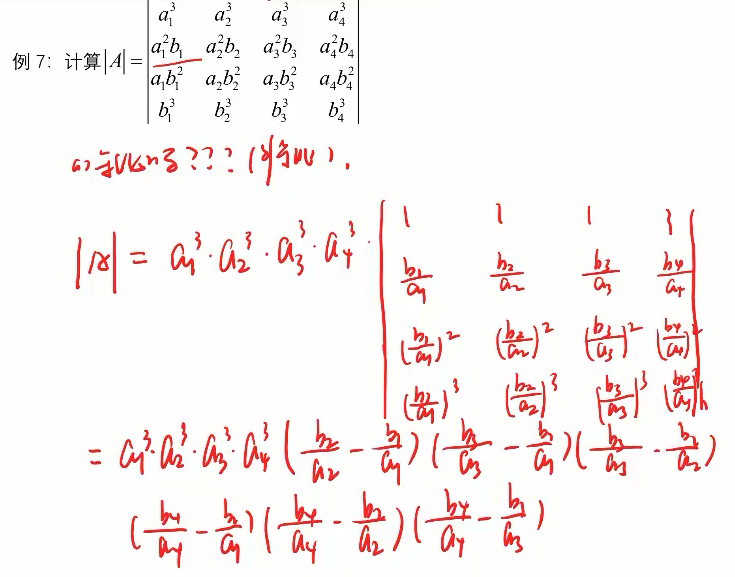 a₁³ a₂³ a₃³ a₄³
例 7：计算|A|= a₁²b₁ a₂²b₂ a₃²b₃ a₄²b₄
a₁b₁² a₂b₂² a₃b₃² a₄b₄²
b₁³ b₂³ b₃³ b₄³
???
1 1 1 1
|A| = a₁³·a₂³·a₃³·a₄³·
b₁/a₁ b₂/a₂ b₃/a₃ b₄/a₄
(b₁/a₁)² (b₂/a₂)² (b₃/a₃)² (b₄/a₄)²
(b₁/a₁)³ (b₂/a₂)³ (b₃/a₃)³ (b₄/a₄)³
= a₁³·a₂³·a₃³·a₄³ (b₂/a₂ - b₁/a₁)(b₃/a₃ - b₁/a₁)(b₃/a₃ - b₂/a₂)
(b₄/a₄ - b₁/a₁)(b₄/a₄ - b₂/a₂)(b₄/a₄ - b₃/a₃)